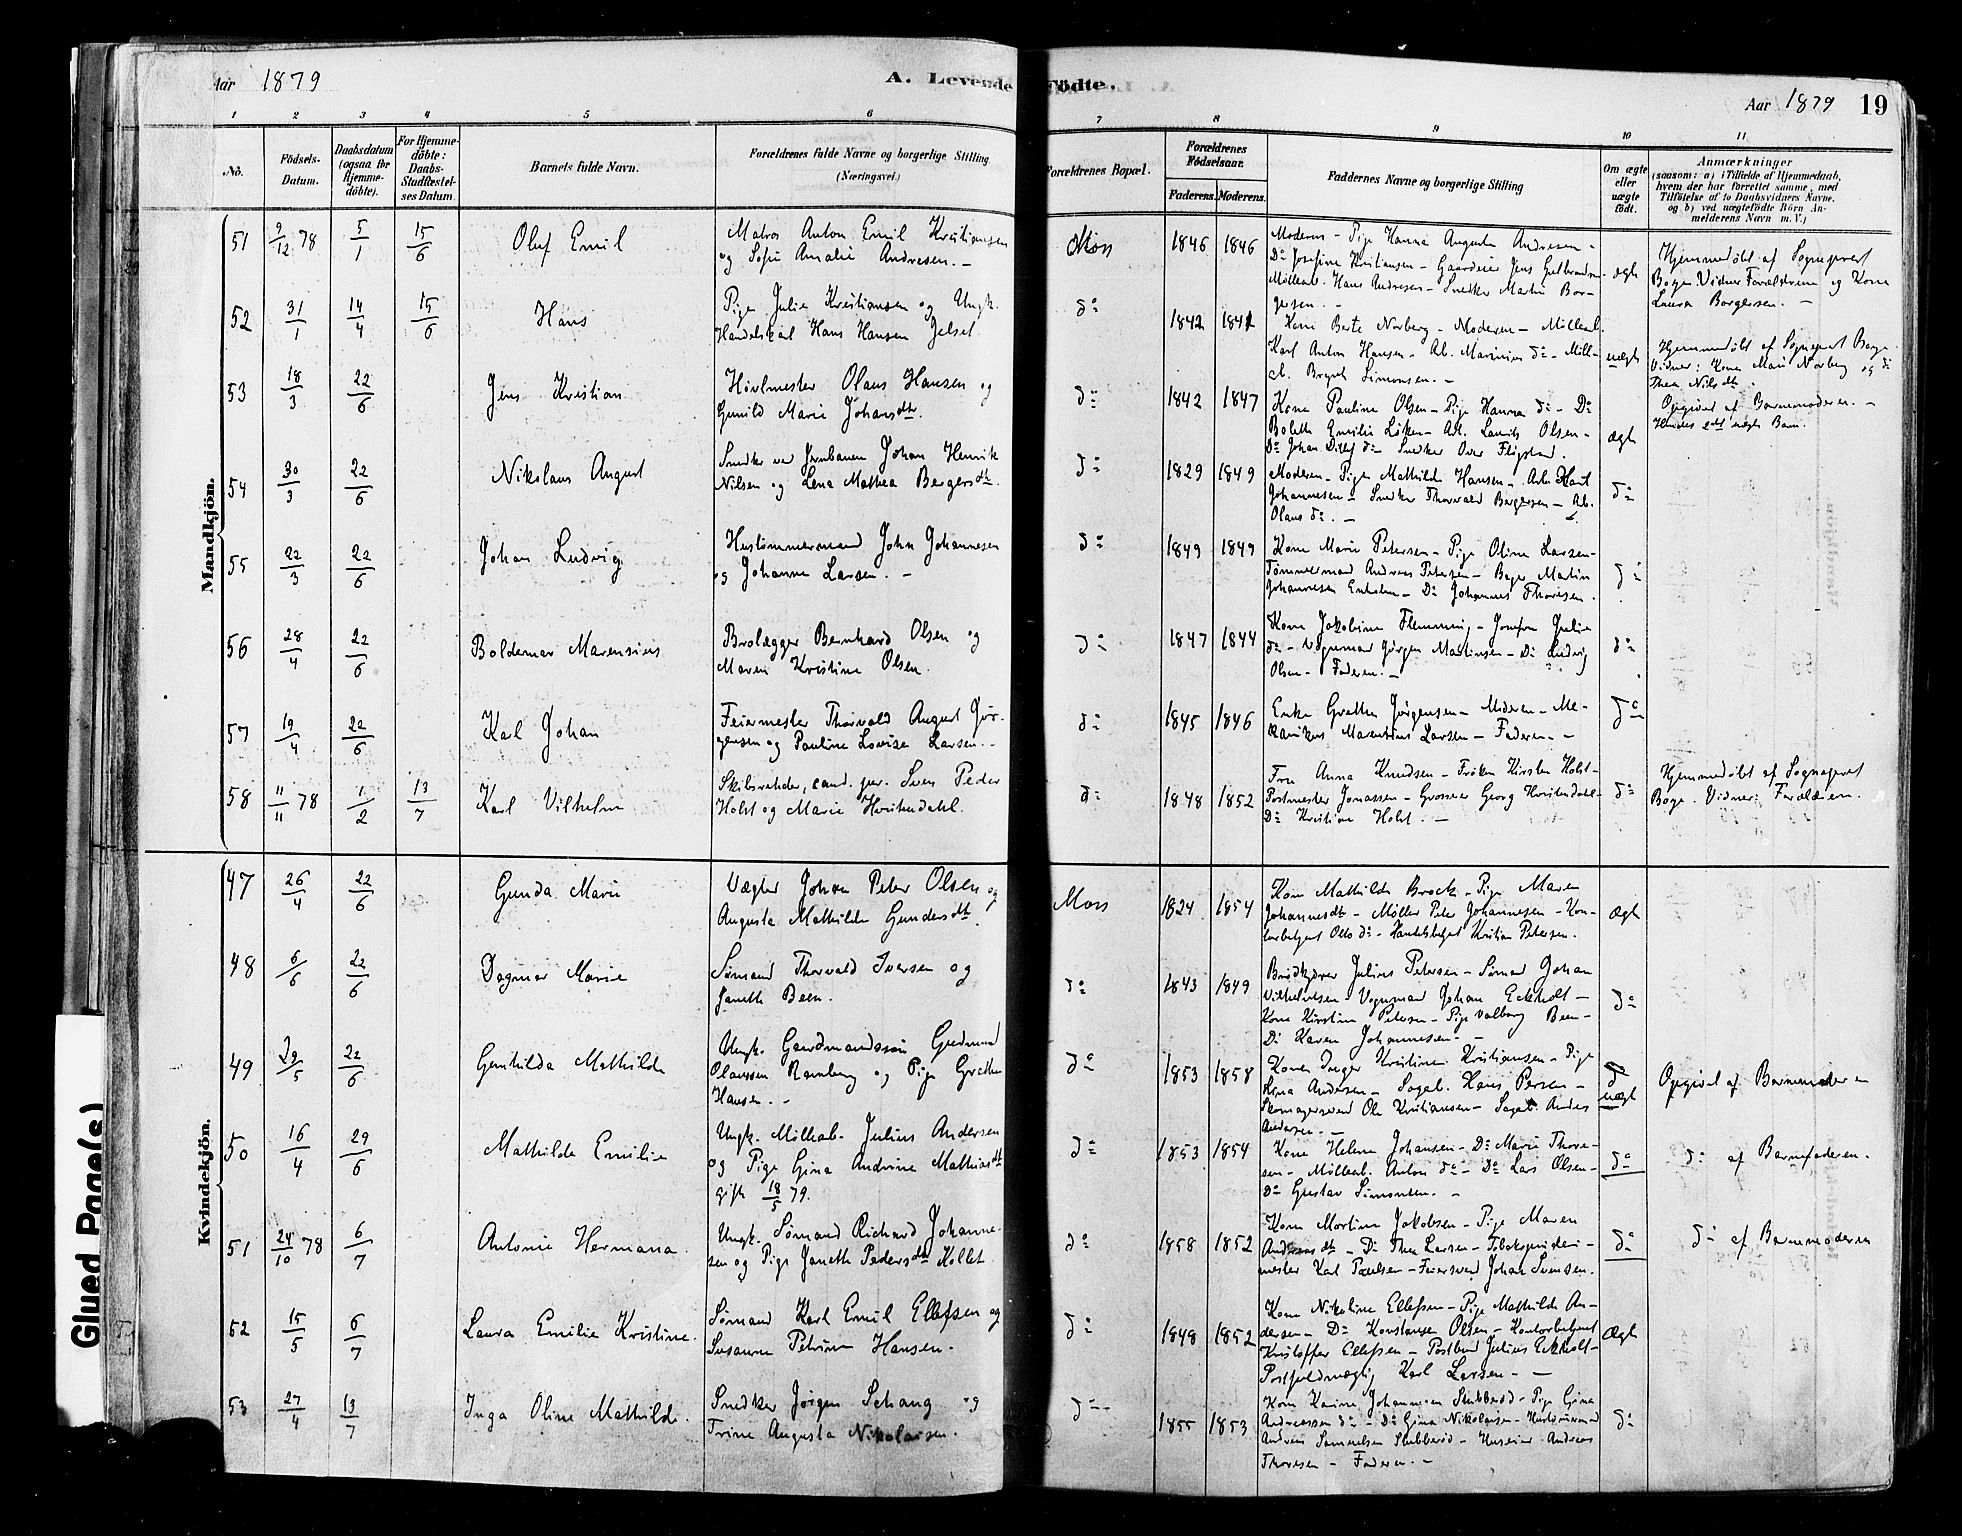 Aar 1879
A. Levende Födte.
Aar 1879 19
1 2 3 4 5 6 7 8 9 10 11
No.
Födsels-Datum.
Daabsdatum (ogsaa for Hjemme-döbte).
For Hjemme-döbte: Daabs-Stadfæstel-ses Datum
Barnets fulde Navn.
Forældrenes fulde Navne og borgerlige Stilling (Næringsvei.)
Forældrenes Bopæl.
Forældrenes Födselsaar.
Faderens. Moderens.
Faddernes Navne og borgerlige Stilling
Om ægte eller uægte født.
Anmærkninger
(saasom: a) i Tilfælde af Hjemmedaab,
hvem der har forrettet samme, med
Tilföielse af to Daabsvidners Navne.
og b) ved uægtefödte Börn An-
melderens Navn m. V.)
Mandkjön.
51 9/12 78 5/1 15/6 Oluf Emil
Matros Anton Emil Kristiansen
og Sofie Amalie Andresen. –
Moss 1846 1846
Moderen – Pige Hanna Augusta Andresen –
Do Josefine Kristiansen – Gaardeier Jens Gulbrandsen
Mølleab. Hans Andresen – Snedker Martin Bor-
gersen. –
ægte
Hjemmedøbt af Sognepræst
Boge. Vidner Forældrene og Kone
Laura Borgersen. –
52 31/1 14/4 15/6 Hans
Pige Julie Kristiansen og Ungk.
Handelskarl Hans Hansen Jelset
do 1842 1842
Kone Berte Norberg – Moderen – Mølleab.
Karl Anton Hansen – Ab. Marinius do – Møll-
Simonsen. –
uægte
Hjemmedøbt af Sognepræst Boge.
Vidner: Kone Mari Norberg og do
Thea Nilsdtr.
Opgivet af Barnemoderen. –
Hendes 2det uægte Barn.
53 18/3 22/6 Jens Kristian
Høvlmester Olaus Hansen og
Gunild Marie Johansdtr.
do 1842 1847
Kone Pauline Olsen – Pige Hanna do – Do
Bolette Emilie Løken – Ab. Laurits Olsen –
Do Johan do – Snedker
ægte
54 30/3 22/6 Nikolaus August
Snedker ved Jernbanen Johan Henrik
Nilsen og Lena Mathea Bergersdtr.
do 1829 1849
Moderen – Pige Mathilde Hansen – Arb.
Johannesen – Snedker Thorvald Bergersen – Ab.
Olaus do. –
do
55 22/3 22/6 Johan Ludvig
Hustømmermand John Johannesen
og Johanne Larsen. –
do 1849 1849
Kone Marie Petersen – Pige Oline Larsen –
Tømmermand Andreas Petersen – Bager Martin
Johannesen – Do Johannes Thoresen.
do
56 28/4 22/6 Boldemar Marensius
Brolægger Bernhard Olsen og
Maren Kristine Olsen.
do 1847 1844
Kone Jakobine Flemming – Jomfru Julie
do – Vognmand Jørgen Martinsen – Do Ludvig
Olsen – Faderen. –
do
57 19/4 22/6 Karl Johan
Feiermester Thorvald August Jør-
gensen og Pauline Lovise Larsen. –
do 1845 1846
Enke Grethe Jørgensen – Moderen – Me-
kanikus Larsen – Faderen. –
do
58 11/11 78 1/2 13/7 Karl Vilhelm
Skibsreder, cand. jur. Sven Peder
Holst og Marie Hvistendahl.
do 1848 1852
Fru Anna Knudsen – Frøken Kirsten Holst –
Postmester Jonassen – Grosserer Georg Hvistendahl –
Do Kristian Holst. –
do
Hjemmedøbt af Sognepræst
Boge. Vidner: Forældrene.
Kvindekjön.
47 26/4 22/6 Gunda Marie
Vægter Johan Peter Olsen og
Augusta Mathilde Gundersdtr.
Moss 1824 1854
Kone Mathilde Brock – Pige Maren
Johannesdtr – Møller Peter Johannesen – Kon-
torbetjent Otto do – Handelsbetjent Kristian Petersen.
ægte
48 6/6 22/6 Dagmar Marie
Sømand Thorvald Iversen og
Janette Been.
do 1843 1849
Brødkjører Julius Petersen – Sømand Johan
Vilhelmsen – Vognmand Johan Eckholt –
Kone Kirstine Petersen – Pige Valborg Been –
Do Karen Johannesen. –
do
49 29/5 22/6 Gunhilda Mathilde
Ungk. Gaardmandssøn Gudmund
Olaussen Ramberg og Pige Grethe
Hansen. –
do 1853 1858
Kone Inger Kristine Kristiansen – Pige
Lina Andersen – Sagab. Hans Persen –
Skomagersvend Ole Kristiansen – Sagab. Anders
Andersen. –
do uægte
Opgivet af Barnemoderen
50 16/4 29/6 Mathilde Emilie
Ungk. Mølleab. Julius Andersen
og Pige Gina Andrine Mathiasdtr
gift 18/5 79.
do 1853 1854
Kone Helene Johansen – Do Marie Thore-
sen – Mølleab. Anton do – Do Lars Olsen –
Do Gustav Simonsen. –
do
do af Barnefaderen.
51 24/10 78 6/7 Antonie Hermana
Ungk. Sømand Richard Johanne-
sen og Pige Janette Pedersdtr Kollet
do 1858 1852
Kone Martine Jakobsen – Pige Maren
Andreasdtr – Do Thea Larsen – Tobakspinderi-
mester Karl Paulsen – Feiersvend Johan Svensen.
do
do af Barnemoderen
52 15/5 6/7 Laura Emilie Kristine.
Sømand Karl Emil Ellefsen og
Susanne Petrine Hansen.
do 1848 1852
Kone Nikoline Ellefsen – Pige Mathilde An-
dersen – Do Konstanse Olsen – Kontorbetjent
Kristoffer Ellefsen – Postbud Julius Eckholt –
Postfuldmægtig Karl Larsen. –
ægte
53 27/4 13/7 Inga Oline Mathilde.
Snedker Jørgen Schang og
Trine Augusta Nikolaisen.
do 1855 1853
Kone Karine Johannesen Stubberød – Pige Gina
Andreassen do – Do Gina Nikolaisen – Hustømmermand
Andreas Samuelsen Stubberød – Huseier Andreas
Thoresen – Faderen. –
do
Glued Page(s)